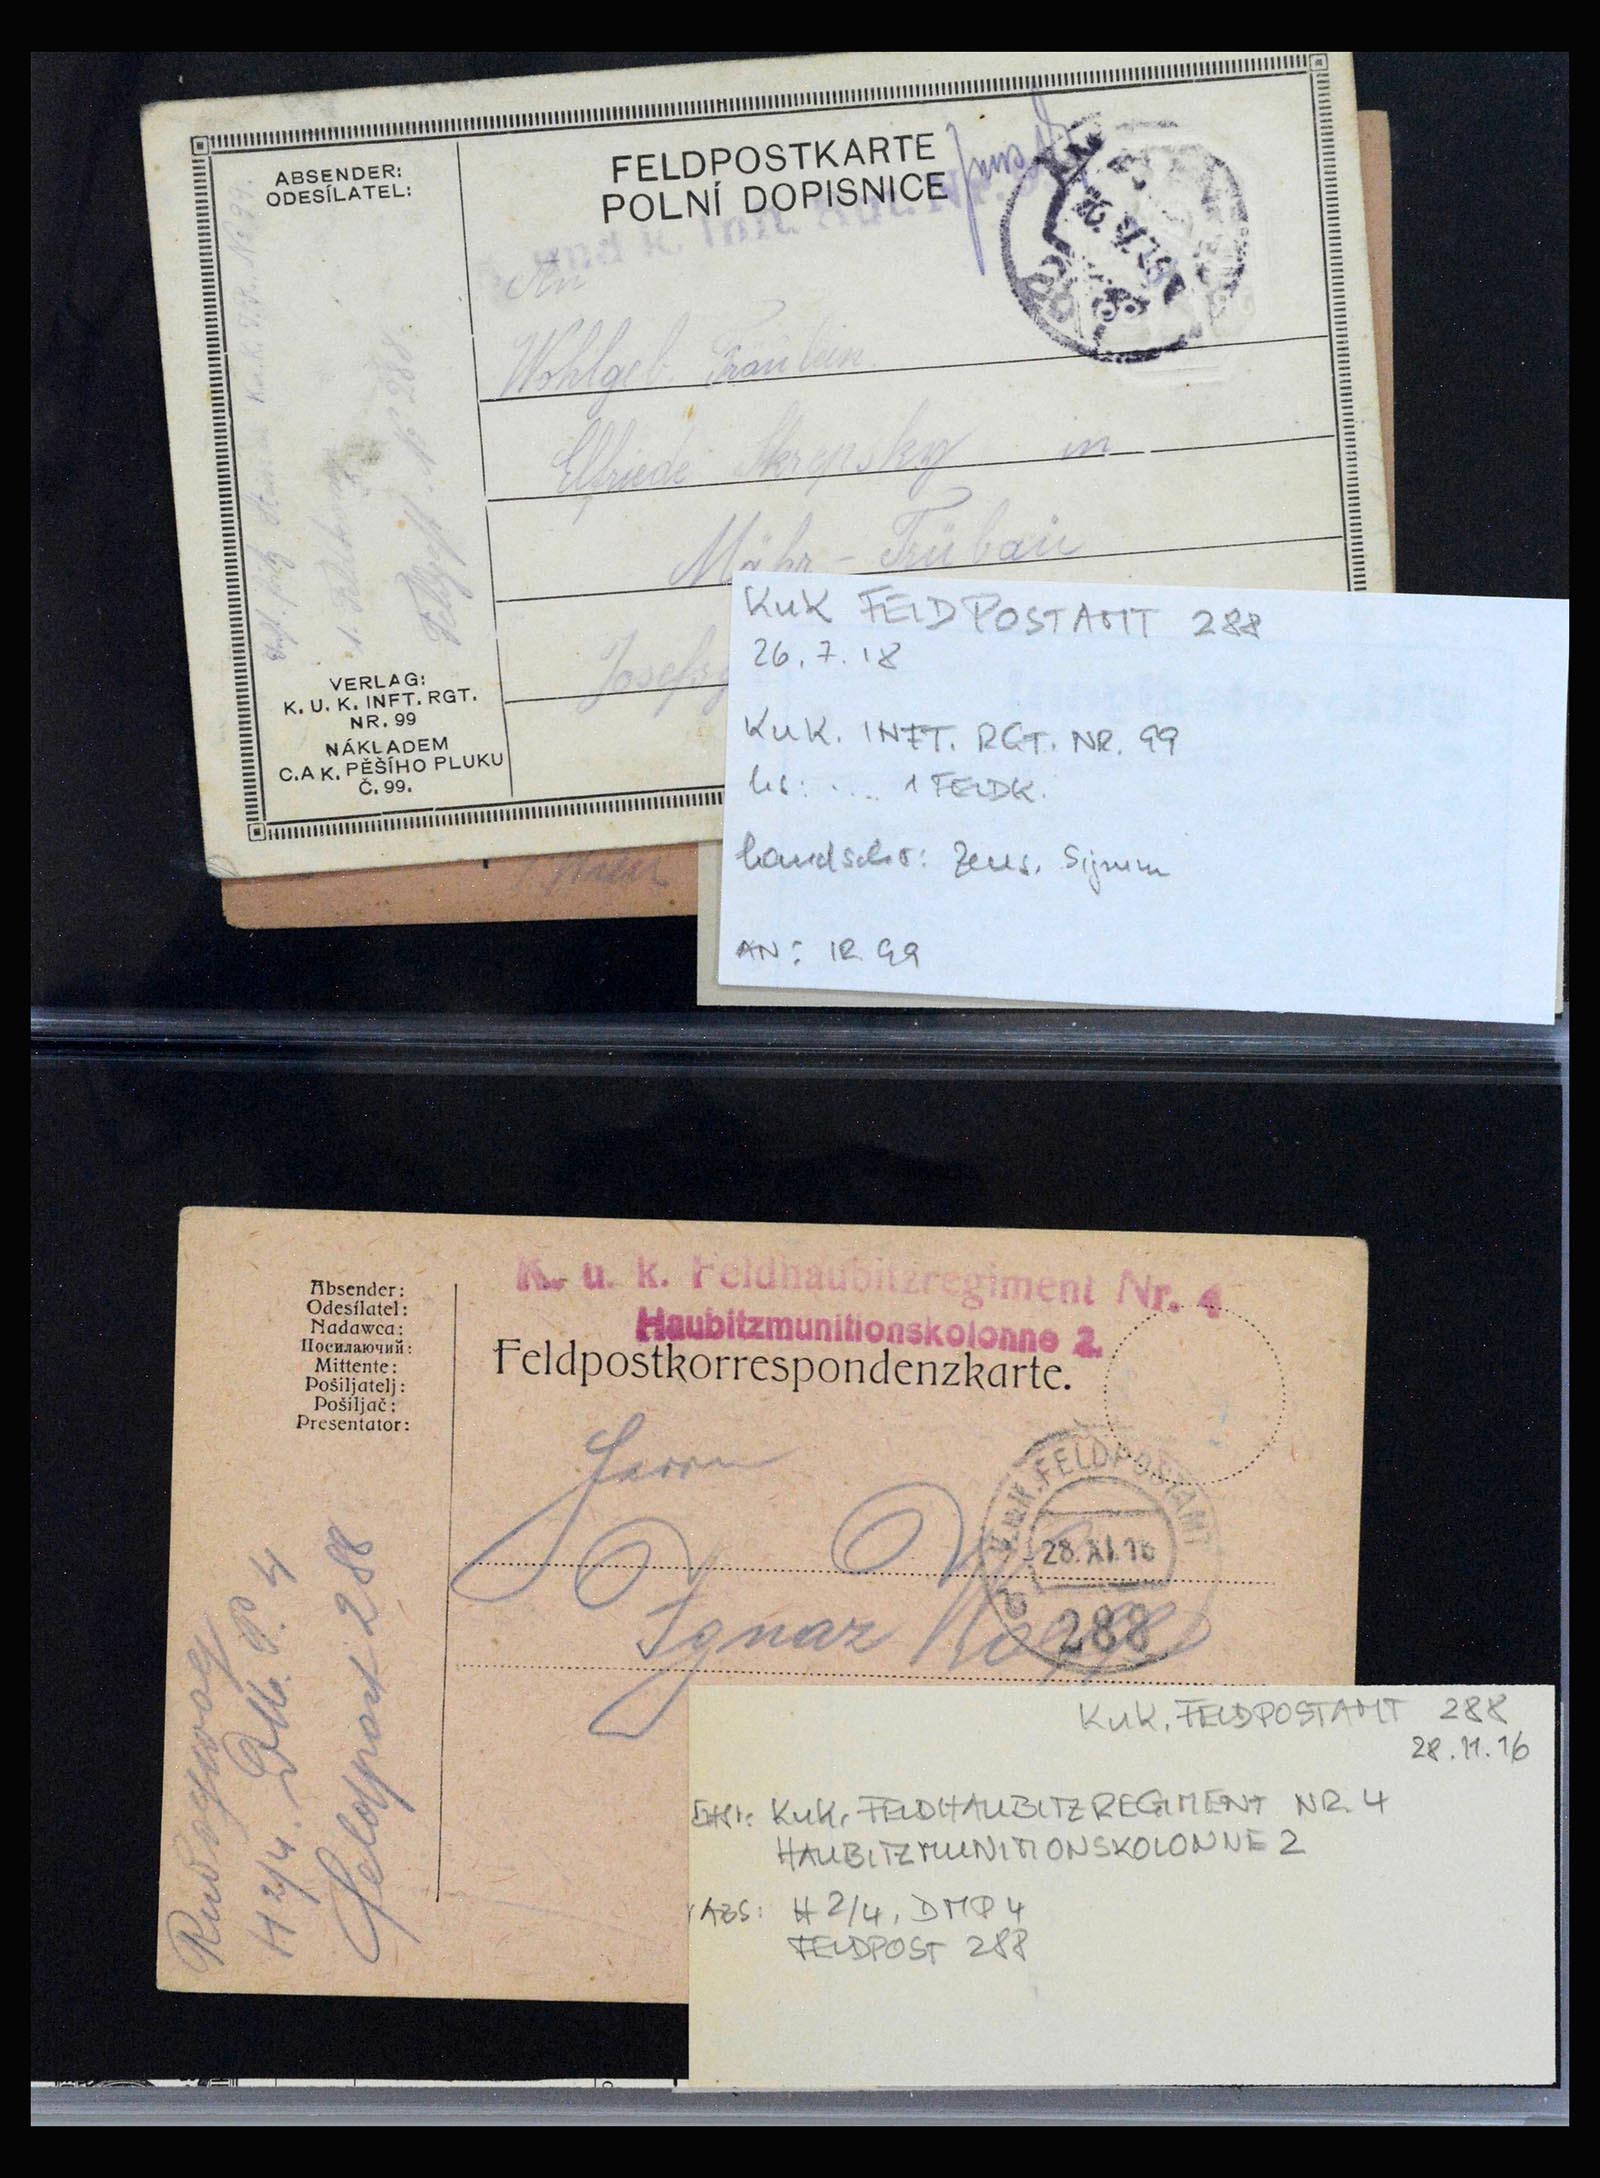 ABSENDER:
ODESÍLATEL:
FELDPOSTKARTE
POLNÍ DOPISNICE
und k. Inft. Rgt. Nr.
An
Wohlgeb. Fräulein
Elfriede Skrepsky in
Mähr-Trübau
1. Feldkomp.
Feldpost No 288.
VERLAG:
K. U. K. INFT. RGT.
NR. 99
NÁKLADEM
C.A K. PĚŠÍHO PLUKU
Č. 99.
KuK FELDPOSTAMT 288
26.7.18
KuK. INFT. RGT. NR. 99
hs: .... 1 FELDK.
handschr: Zens. Signum
AN: IR. 99
K. u. k. Feldhaubitzregiment Nr. 4
Haubitzmunitionskolonne 2.
Absender:
Odesílatel:
Nadawca:
Посилаючий:
Mittente:
Pošiljatelj:
Pošiljač:
Presentator:
Feldpostkorrespondenzkarte.
K.u.K. FELDPOSTAMT
28.XI.16
a
288
Herrn
Ignaz
H 2/4. DM. P. 4
Feldpost 288
KuK. FELDPOSTAMT 288
28.11.16
KuK. FELDHAUBITZREGIMENT NR. 4
HAUBITZMUNITIONSKOLONNE 2
ABS: H 2/4, DMP 4
FELDPOST 288